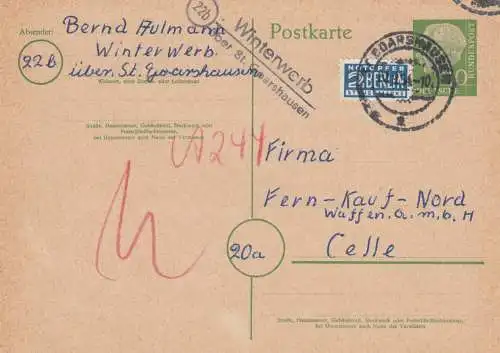 Absender:
Bernd Aulmann
Winterwerb
22B
über St. Goarshausen
Wohnort, auch Zustell- oder Leitpostamt
Straße, Hausnummer, Gebäudeteil, Stockwerk oder
Postschließfachnummer,
bei Untermietern auch Name des Vermieters
(22b)
Winterwerb
über St. Goarshausen
Postkarte
NOTOPFER
2 BERLIN
STEUERMARKE
GOARSHAUSEN
a
DEUTSCHE
BUNDESPOST
10
A244
Firma
Fern-Kauf-Nord
Waffen G.m.b.H
20a
Celle
Straße, Hausnummer, Gebäudeteil, Stockwerk oder Postschließfachnummer,
bei Untermietern auch Name des Vermieters